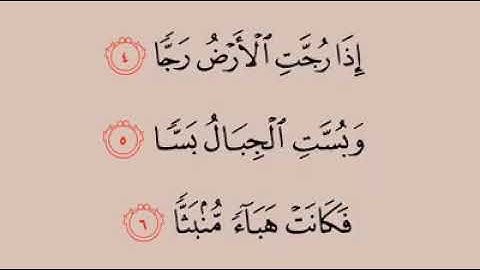 إِذَا رُجَّتِ ٱلْأَرْضُ رَجًّا ٤
وَبُسَّتِ ٱلْجِبَالُ بَسًّا ٥
فَكَانَتْ هَبَآءً مُّنۢبَثًّا ٦